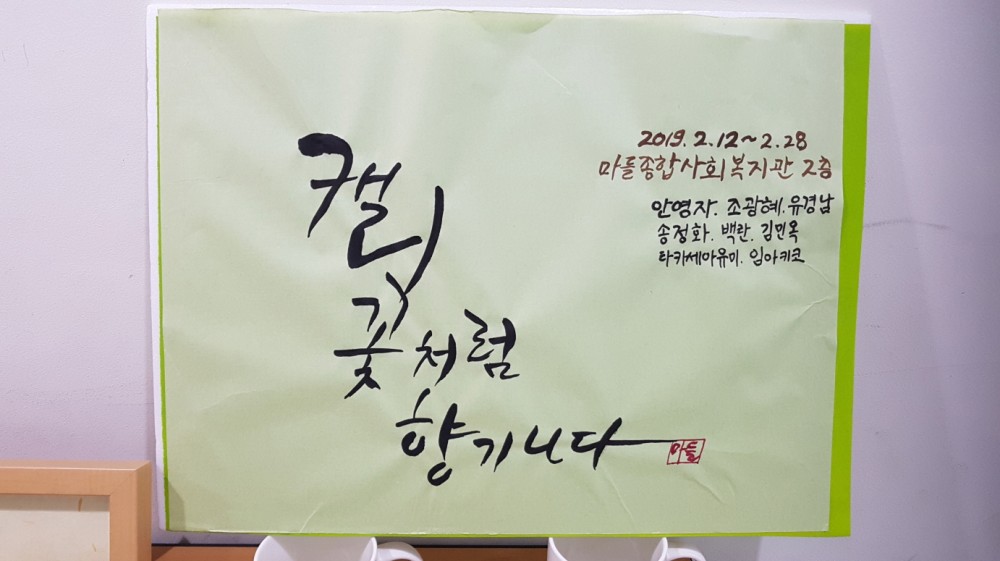 캘리
꽃처럼
향기나다
마들
2019. 2. 12~2. 28
마들종합사회복지관 2층
안영자. 조광혜. 유경남
송정화. 백란. 김민옥
타카세아유미. 임아키코